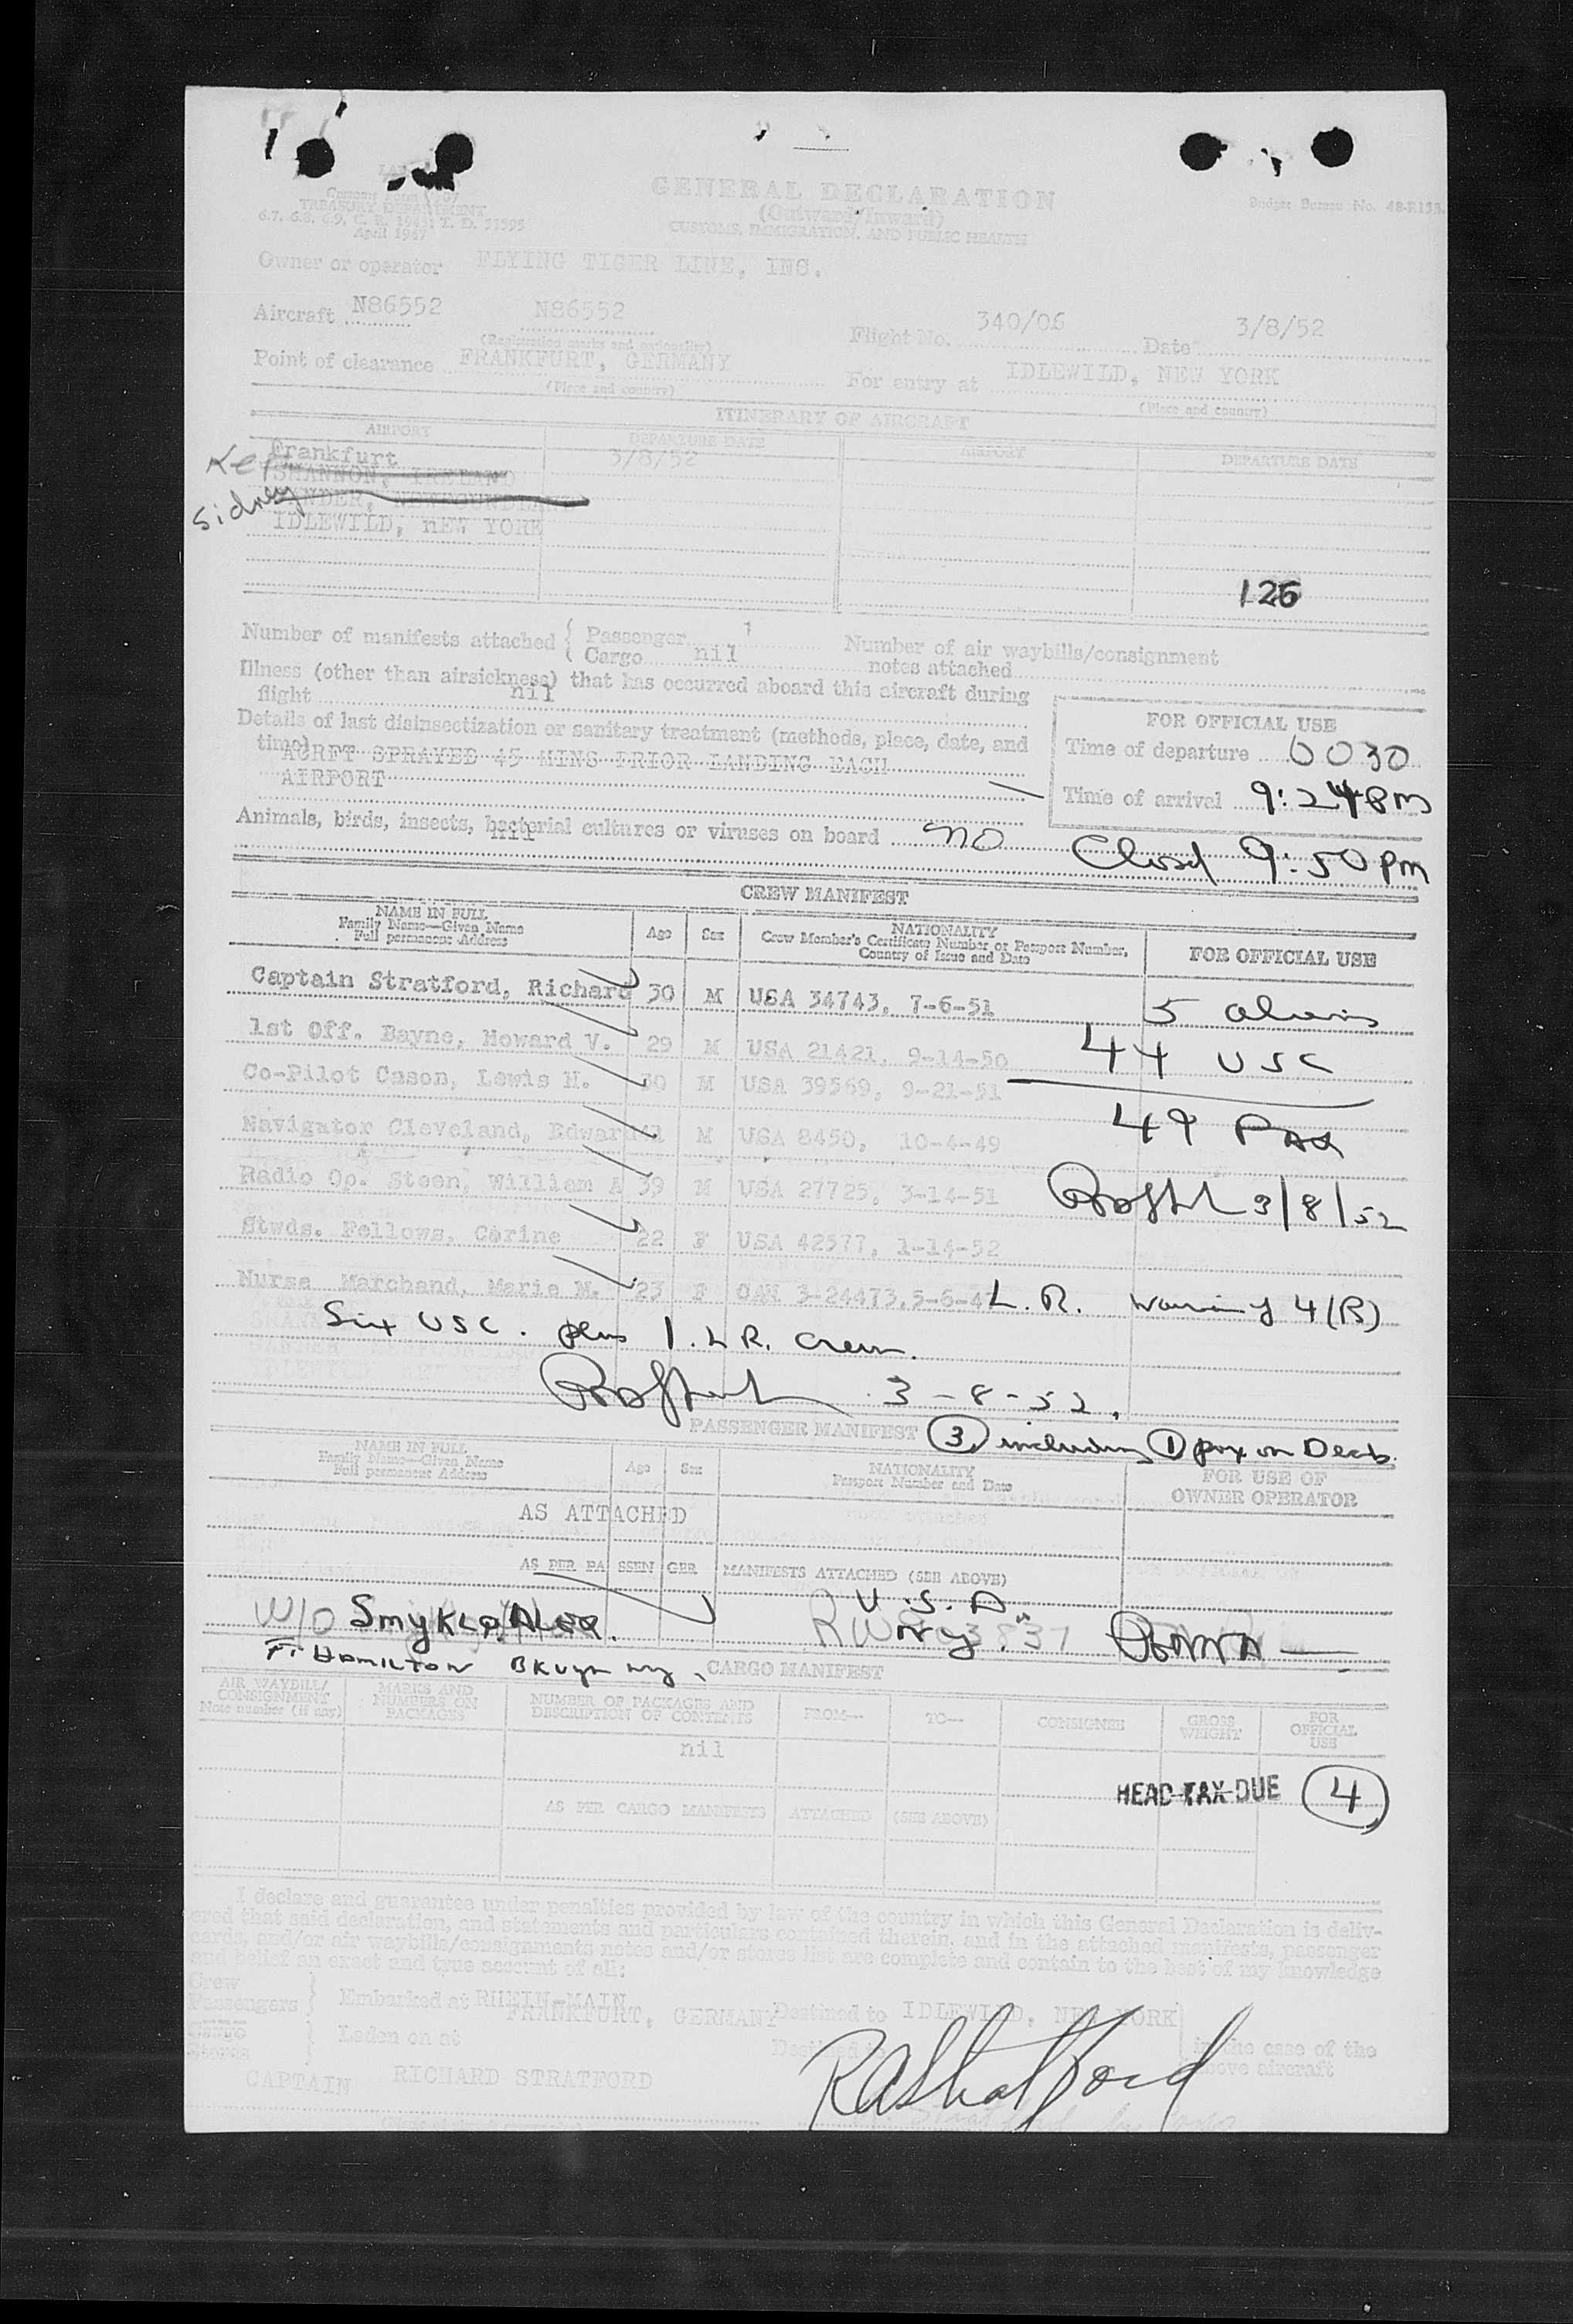 GENERAL DECLARATION
(Outward/Inward)
CUSTOMS, IMMIGRATION, AND PUBLIC HEALTH
TREASURY DEPARTMENT
6.7, 6.8, 6.9, C. R. 1943; T. D. 51595
April 1947
Budget Bureau No. 48-R153.
Owner or operator FLYING TIGER LINE, INC.
Aircraft N86552 N86552
(Registration marks and nationality)
Flight No. 340/06 Date 3/8/52
Point of clearance FRANKFURT, GERMANY
(Place and country)
For entry at IDLEWILD, NEW YORK
(Place and country)
ITINERARY OF AIRCRAFT
AIRPORT DEPARTURE DATE AIRPORT DEPARTURE DATE
Frankfurt 3/8/52
Kef SHANNON, IRELAND
Sidney GANDER, NEWFOUNDLAND
IDLEWILD, nEW YORK
126
Number of manifests attached { Passenger 1
Cargo nil
Number of air waybills/consignment
notes attached
Illness (other than airsickness) that has occurred aboard this aircraft during
flight nil
Details of last disinsectization or sanitary treatment (methods, place, date, and
time) ACRFT SPRAYED 45 MINS PRIOR LANDING EACH
AIRPORT
FOR OFFICIAL USE
Time of departure 0030
Time of arrival 9:24 pm
Animals, birds, insects, bacterial cultures or viruses on board no
nil
Closed 9:50 pm
CREW MANIFEST
NAME IN FULL
Family Name—Given Name
Full permanent Address
Age Sex
NATIONALITY
Crew Member's Certificate Number or Passport Number,
Country of Issue and Date
FOR OFFICIAL USE
Captain Stratford, Richard 30 M USA 34743, 7-6-51 5 aliens
1st Off. Bayne, Howard V. 29 M USA 21421, 9-14-50 44 USC
Co-Pilot Cason, Lewis H. 30 M USA 39569, 9-21-51
49 Pax
Navigator Cleveland, Edward 41 M USA 8450, 10-4-49
Radio Op. Steen, William A 39 M USA 27725, 3-14-51 3/8/52
Stwds. Fellows, Carine 22 F USA 42577, 1-14-52
Nurse Marchand, Marie M. 23 F CAN 3-24473, 5-6-47 L. R. 4(B)
Six USC. plus 1. L R. Crew.
3-8-52.
PASSENGER MANIFEST 3 including 1 pax on Decb.
NAME IN FULL
Family Name—Given Name
Full permanent Address
Age Sex
NATIONALITY
Passport Number and Date
FOR USE OF
OWNER OPERATOR
AS ATTACHED
AS PER PASSENGER MANIFESTS ATTACHED (SEE ABOVE)
U.S.A
W/O
Ft Hamilton Bklyn Ny
CARGO MANIFEST
AIR WAYBILL/
CONSIGNMENT
Note number (if any)
MARKS AND
NUMBERS ON
PACKAGES
NUMBER OF PACKAGES AND
DESCRIPTION OF CONTENTS
FROM— TO— CONSIGNEE
GROSS
WEIGHT
FOR
OFFICIAL
USE
nil
HEAD TAX DUE 4
AS PER CARGO MANIFESTS ATTACHED (SEE ABOVE)
I declare and guarantee under penalties provided by law of the country in which this General Declaration is deliv-
ered that said declaration, and statements and particulars contained therein, and in the attached manifests, passenger
cards, and/or air waybills/consignments notes and/or stores list are complete and contain to the best of my knowledge
and belief an exact and true account of all:
Crew
Passengers } Embarked at RHEIN-MAIN
FRANKFURT, GERMANY Destined to IDLEWILD, NEW YORK
Cargo
Stores } Laden on at
in the case of the
above aircraft
CAPTAIN RICHARD STRATFORD
RAStratford